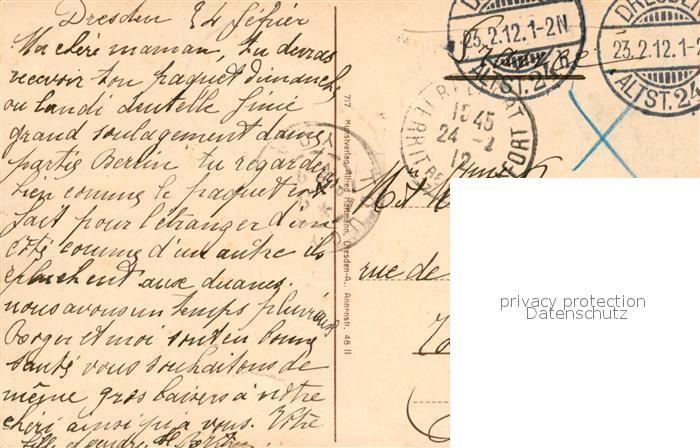 Dresden 24 février
Ma chère maman, tu devras
recevoir ton paquet dimanche
ou lundi dentelle finie
grand soulagement dame
partie Berlin tu regardes
bien comme le paquet est
fait pour l'étranger d'un
côté comme d'un autre ils
épluchent aux duanes.
nous avons un temps pluvieux
Roger et moi sont en bonne
santé vous souhaitons de
même gros baisers à votre
chéri ainsi qu'à vous. Votre
fille et gendre
717 Kunstverlag Alfred Hartmann, Dresden-A., Annenstr. 48 II
DRESDEN
23.2.12.1-2N
ALTST.24
DRESDEN
23.2.12.1-
ALTST.24
BELFORT
15 45
24 - 2
12
rue de
privacy protection
Datenschutz